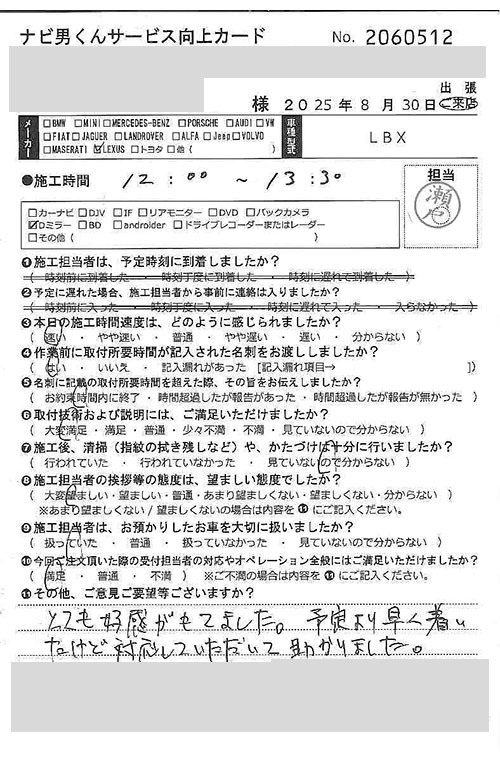 ナビ男くんサービス向上カード No. 2060512
様 2025年8月30日 出張 ご来店
メーカー □BMW □MINI □MERCEDES-BENZ □PORSCHE □AUDI □VW
□FIAT □JAGUER □LANDROVER □ALFA □Jeep □VOLVO
□MASERATI ☑LEXUS □トヨタ □他( )
車種型式 LBX
●施工時間 12:00 ~ 13:30
担当
□カーナビ □DJV □IF □リアモニター □DVD □バックカメラ
☑Dミラー □BD □androider □ドライブレコーダーまたはレーダー
□その他( )
❶施工担当者は、予定時刻に到着しましたか?
(時刻前に到着した ・ 時刻丁度に到着した ・ 時刻に遅れて到着した)
❷予定に遅れた場合、施工担当者から事前に連絡は入りましたか?
(時刻前に入った ・ 時刻丁度に入った ・ 時刻に遅れて入った ・ 入らなかった)
❸本日の施工時間速度は、どのように感じられましたか?
(速い ・ やや速い ・ 普通 ・ やや遅い ・ 遅い ・ 分からない)
❹作業前に取付所要時間が記入された名刺をお渡ししましたか?
(はい ・ いいえ ・ 記入漏れがあった [記入漏れ項目→ ])
❺名刺に記載の取付所要時間を超えた際、その旨をお伝えしましたか?
(お約束時間内に終了 ・ 時間超過したが報告があった ・ 時間超過したが報告が無かった)
❻取付技術および説明には、ご満足いただけましたか?
(大変満足 ・ 満足 ・ 普通 ・ 少々不満 ・ 不満 ・ 見ていないので分からない)
❼施工後、清掃(指紋の拭き残しなど)や、かたづけは十分に行いましたか?
(行われていた ・ 行われていなかった ・ 見ていないので分からない)
❽施工担当者の挨拶等の態度は、望ましい態度でしたか?
(大変望ましい・望ましい・普通・あまり望ましくない・望ましくない・分からない)
※あまり望ましくない/望ましくないの場合は内容を⓫にご記入ください。
❾施工担当者は、お預かりしたお車を大切に扱いましたか?
(扱っていた ・ 普通 ・ 扱っていなかった ・ 見ていないので分からない)
❿今回ご注文頂いた際の受付担当者の対応やオペレーション全般にはご満足いただけましたか?
(満足 ・ 普通 ・ 不満) ※ご不満の場合は内容を⓫にご記入ください。
⓫その他、ご意見ご要望等ございますか?
とても好感がもてました。予定より早く着い
たけど対応していただいて助かりました。